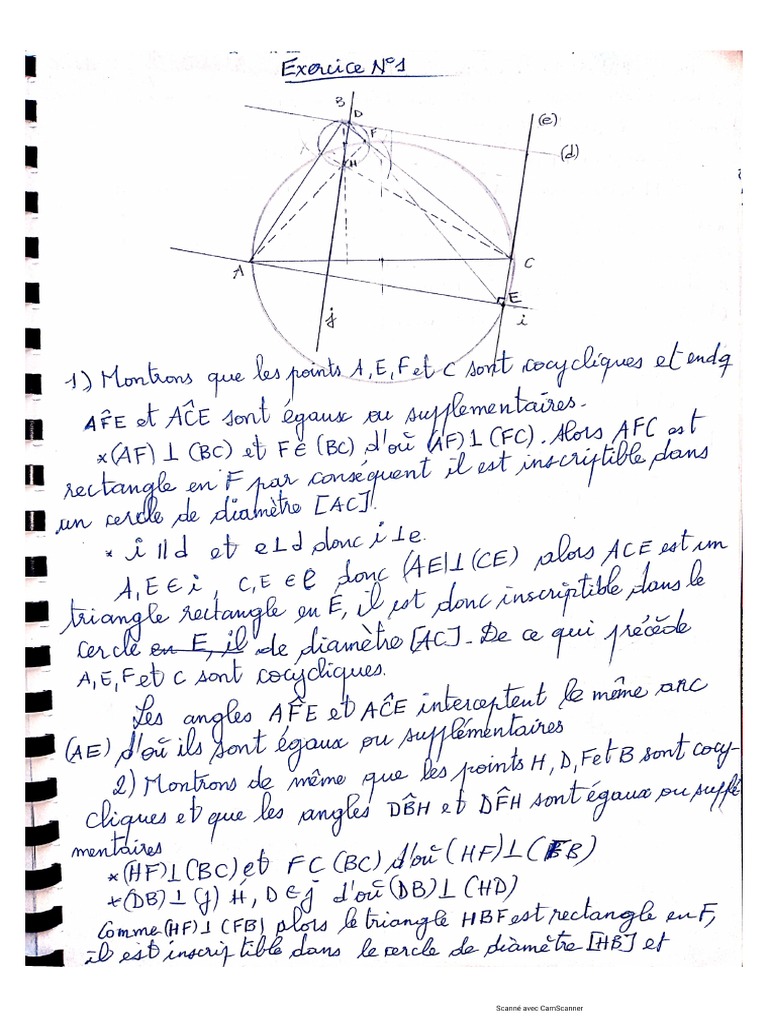 Exercice N°1
B
D
F
(e)
(d)
H
A
C
E
j
i
1) Montrons que les points A, E, F et C sont cocycliques et end q
AF̂E et AĈE sont égaux ou supplementaires.
*(AF) ⊥ (BC) et F ∈ (BC) d'où (AF) ⊥ (FC). Alors AFC est
rectangle en F par conséquent il est inscriptible dans
un cercle de diamètre [AC].
* i ∥ d et e ⊥ d donc i ⊥ e.
A, E ∈ i, C, E ∈ e donc (AE) ⊥ (CE) alors ACE est un
triangle rectangle en E, il est donc inscriptible dans le
cercle en E, il de diamètre [AC]. De ce qui précède
A, E, F et C sont cocycliques.
Les angles AF̂E et AĈE interceptent le même arc
(AE) d'où ils sont égaux ou supplémentaires
2) Montrons de même que les points H, D, F et B sont cocy-
cliques et que les angles DB̂H et DF̂H sont égaux ou supplé
mentaires
*(HF) ⊥ (BC) et F C (BC) d'où (HF) ⊥ (FB)
*(DB) ⊥ (j) H, D ∈ j d'où (DB) ⊥ (HD)
Comme (HF) ⊥ (FB) alors le triangle HBF est rectangle en F,
il est inscriptible dans le cercle de diamètre [HB] et
Scanné avec CamScanner